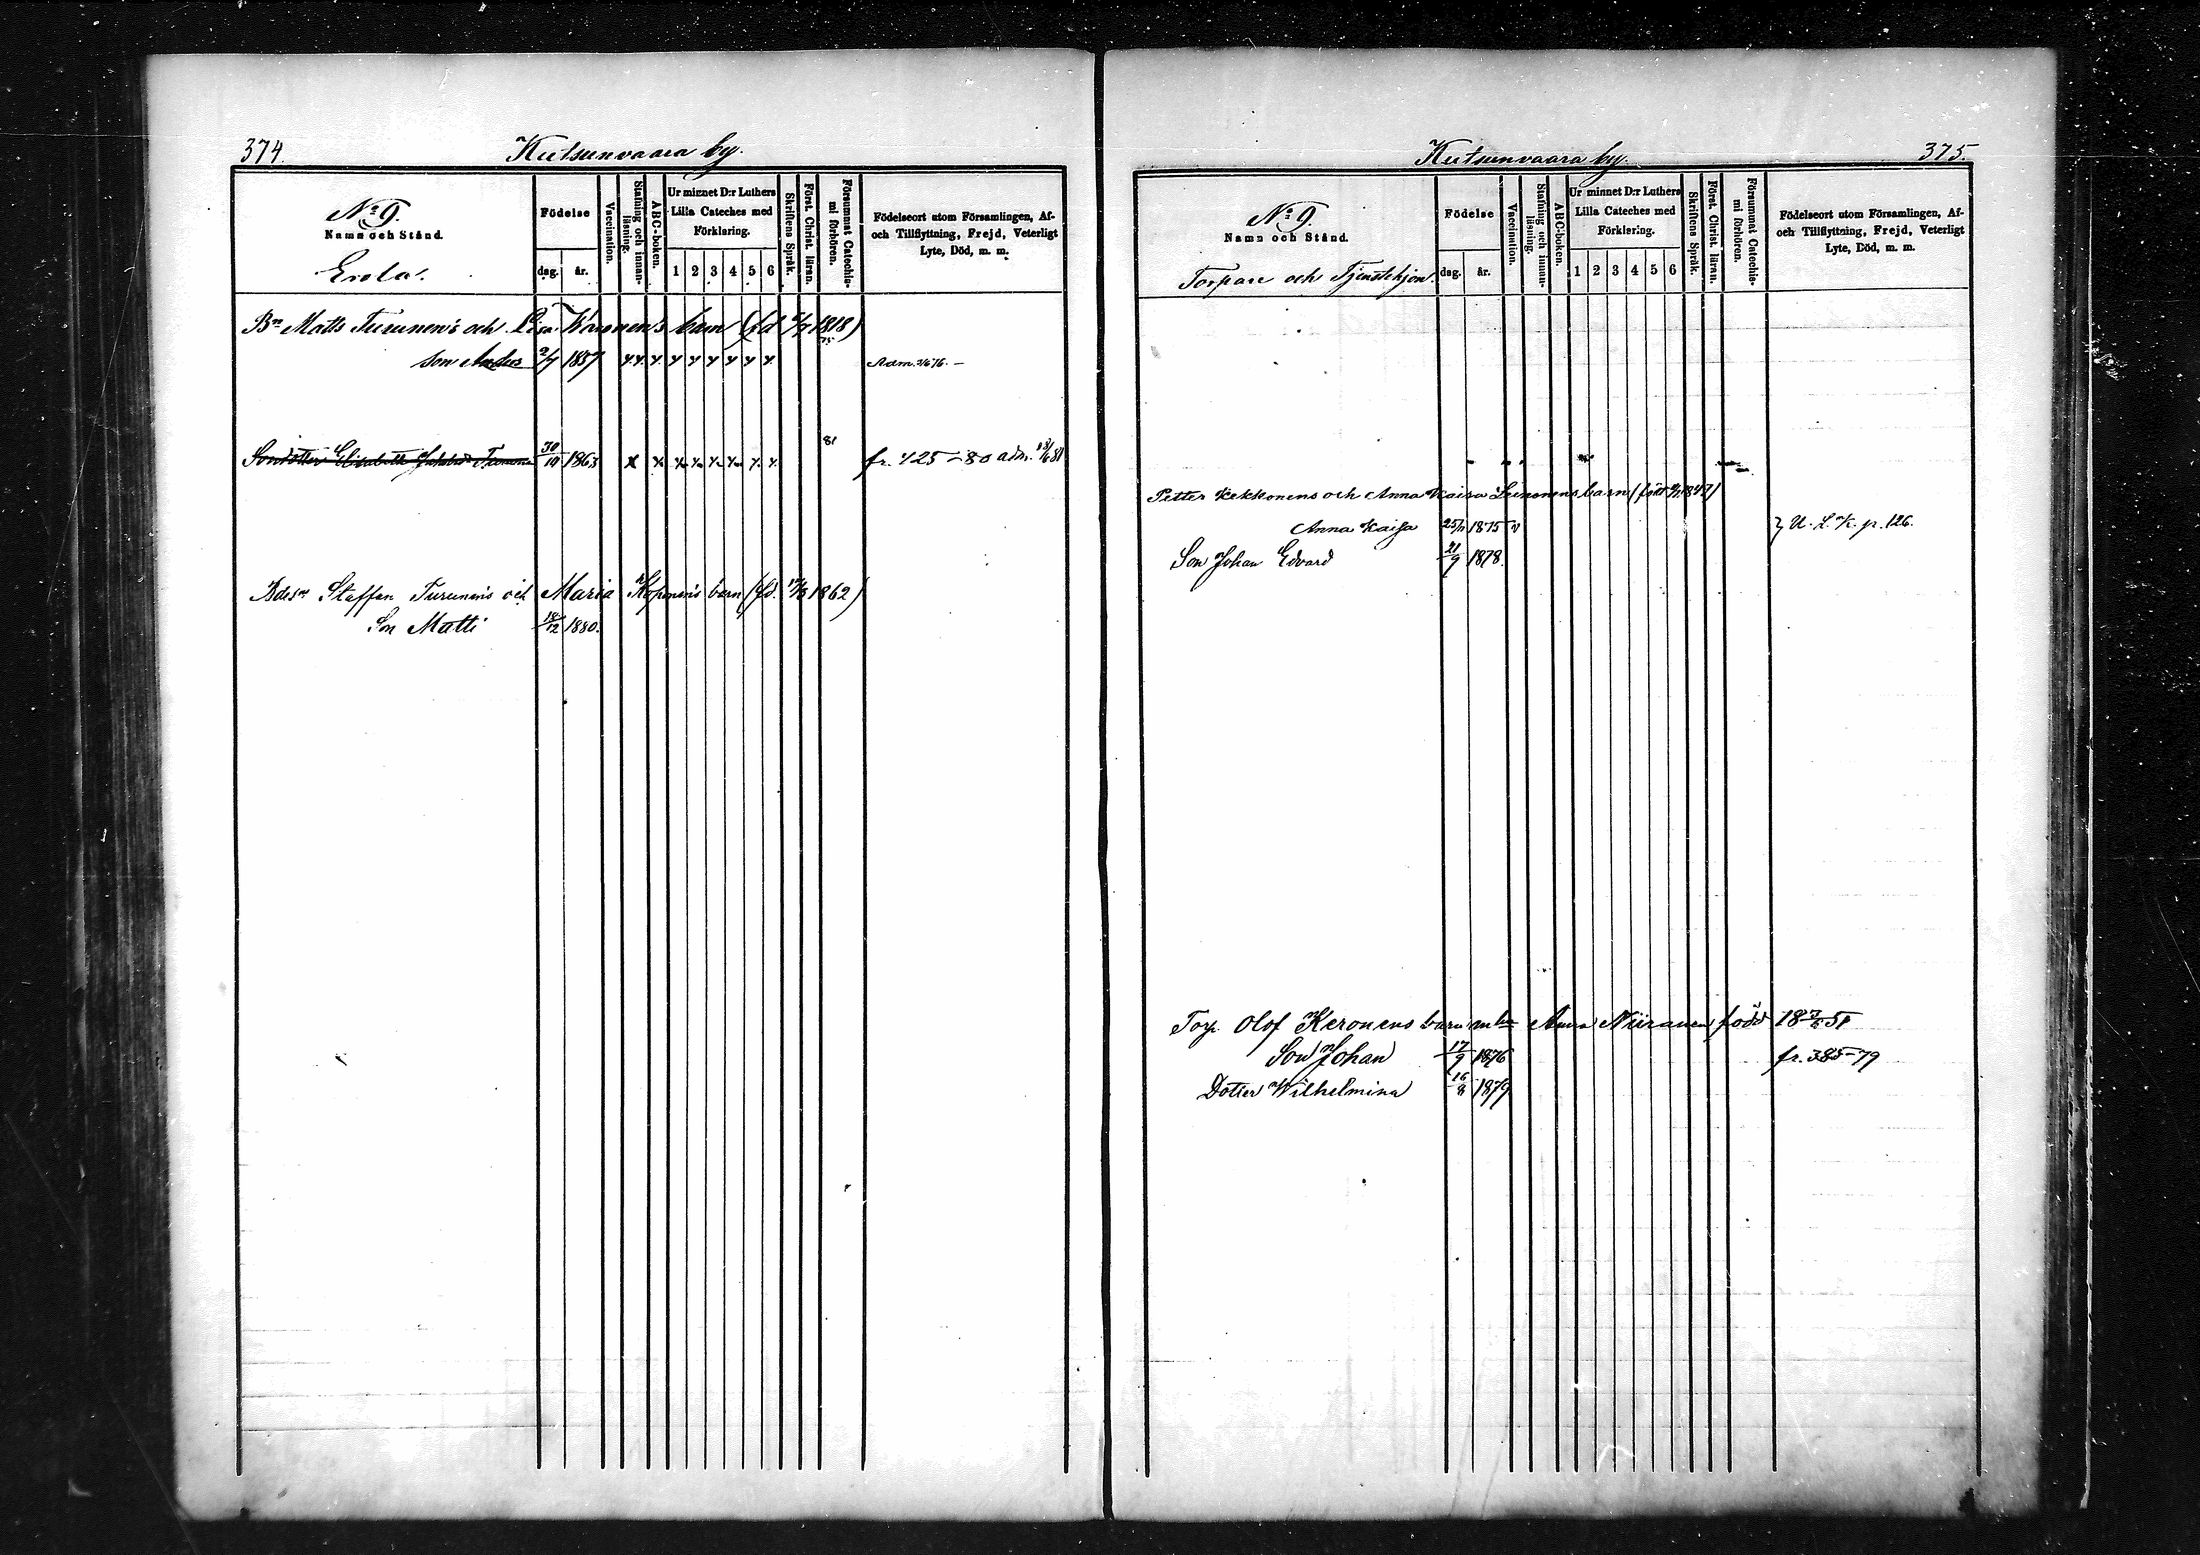 374. Kutsunvaara by.
No 9.
Namn och Stånd.
Erola.
Födelse
dag. år.
Vaccination.
Stafning och innan-läsning.
ABC-boken.
Ur minnet D:r Luthers
Lilla Cateches med
Förklaring.
1 2 3 4 5 6
Skriftens Språk.
Först. Christ. läran.
Försummat Catechis-mi förhören.
Födelseort utom Församlingen, Af-
och Tillflyttning, Frejd, Veterligt
Lyte, Död, m. m.
Bn Matts Turunen's och Lisa barn (fd 1818)
75
Son Anders 2/7 1857 x x x x x x x x x Adm. 76. –
81
Sondotter Elisabeth Turunen 30/10 1863 x x x x x x x x fr. 425–80 adm. 81
Staffan Turunens och Maria barn (fd. 1862)
Son Matti 18/12 1880.
Kutsunvaara by. 375.
No 9.
Namn och Stånd.
Torpare och Tjenstehjon.
Födelse
dag. år.
Vaccination.
Stafning och innan-läsning.
ABC-boken.
Ur minnet D:r Luthers
Lilla Cateches med
Förklaring.
1 2 3 4 5 6
Skriftens Språk.
Först. Christ. läran.
Försummat Catechis-mi förhören.
Födelseort utom Församlingen, Af-
och Tillflyttning, Frejd, Veterligt
Lyte, Död, m. m.
Petter Kekkonens och Anna Kaisa barn (född 1847)
Anna Kaisa 25/11 1875 v } U. L. K. p. 126.
Son Johan Edvard 21/9 1878.
Torp. Olof Keronens barn m hu Anna Niiranen född 18 51
Son Johan 17/9 1876 fr. 385–79
Dotter Wilhelmina 16/8 1879